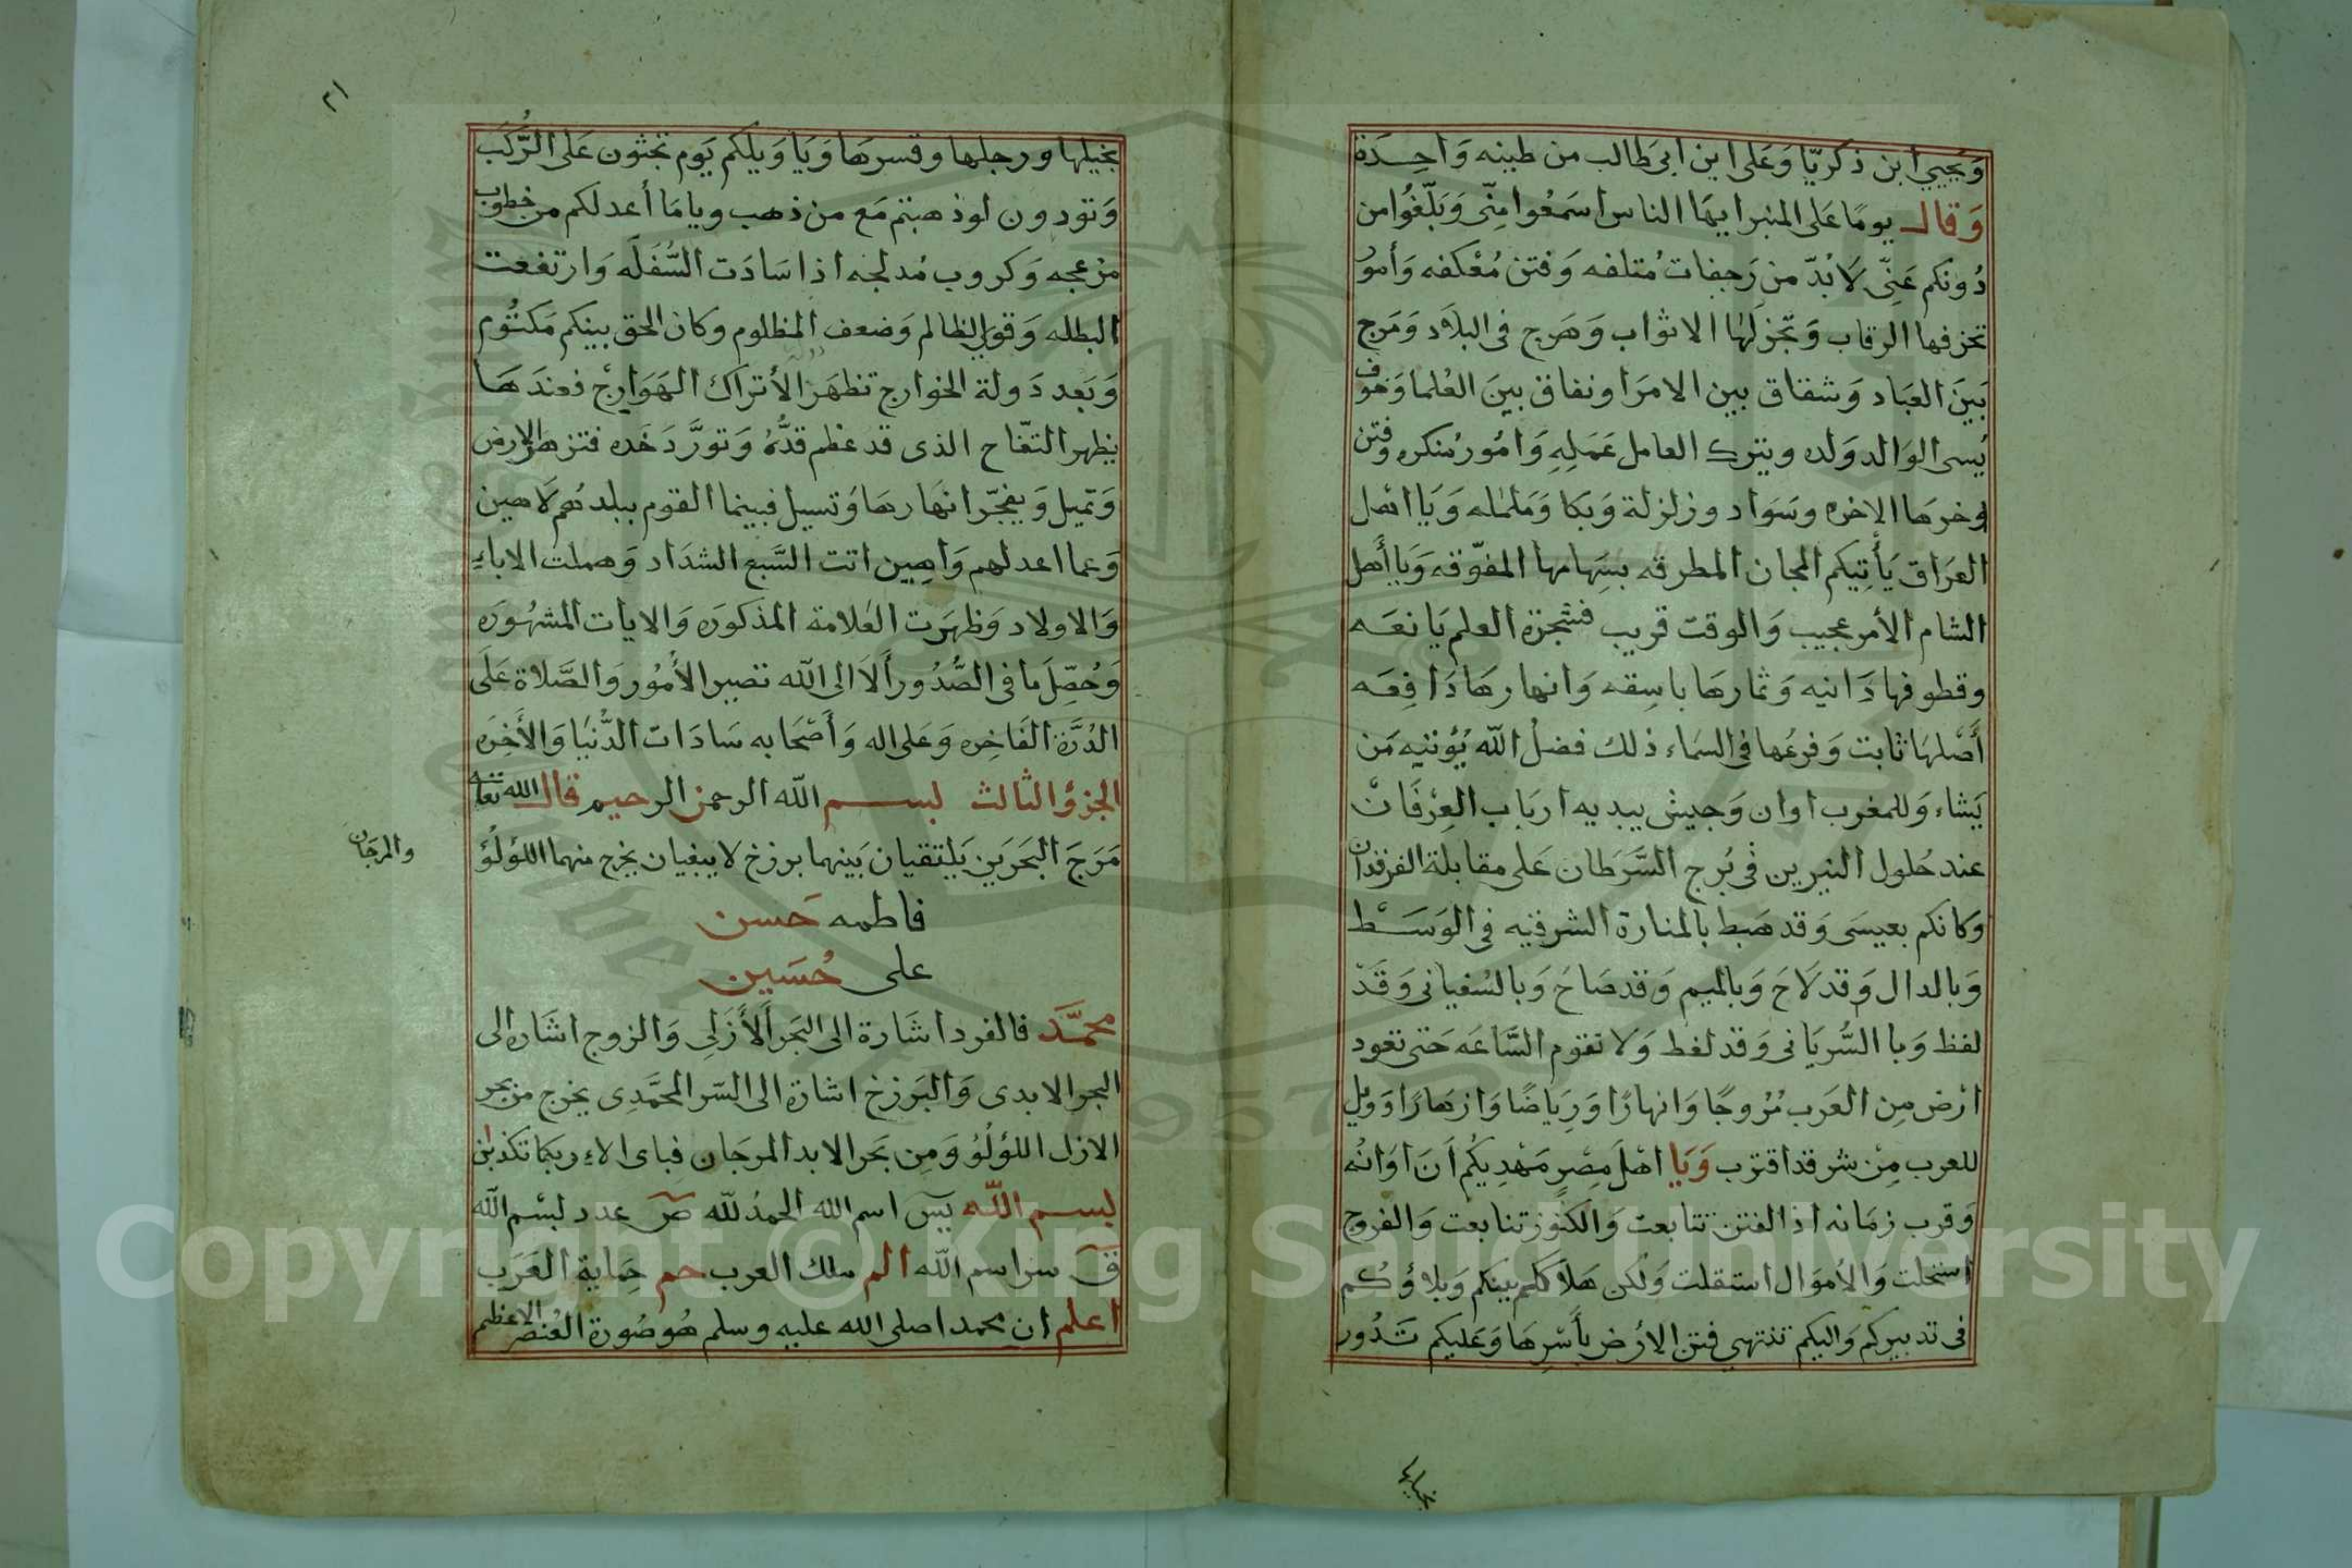 وَيحيي ابن ذكريّا وَعَلى ابن ابى طالب من طينه وَاحِدَة
وَقال يومًا عَلى المنبر ايهَا الناس اسمَعُوا مِنّى وَبَلّغُوا من
دُونكم عَنِّى لَا بُدّ من رَجفات مُتلفه وَفتن مُعْكفه وَأمور
تحزفها الرقاب وَتجزلهَا الاثواب وَهَرج فى البلاد وَمَرج
بَينَ العبَاد وَشقاق بين الامرَا ونفاق بينَ العُلما وَخوف
يُسى الوَالد وَلده ويترك العامل عَمَلِهِ وَامُور مُنكره وفتن
وخرهَا الاخره وسَوَاد وزلزلة وَبَكا وَململه وَيَا اهْل
العرَاق يَأتِيكم المجان المطرقه بسِهَامهَا المفوّقه وَيَا أَهل
الشام الأمر عجيب وَالوقت قريب فشجرة العلم يَانعَه
وقطوفها دَانيه وَثمارهَا باسِقه وَانهارهَا دَافِعَه
أَصْلهَا ثابت وَفرعُها فى السمَاء ذلك فضلُ الله يُؤتيهِ مَن
يَشاء وَللمغرب اوان وَجيش يبديه ارباب العِرْفَانْ
عند حُلول النيرين فى بُرج السَّرَطان عَلى مقابلة الفرقدان
وَكانكم بعيسَى وَقد هَبط بالمنارة الشرقيه فى الوَسَط
وَبالدال وَقد لَاحَ وَبالميم وَقد صَاحَ وَبالسُفيانى وَقَدْ
لفظ وَبا السُّريَانى وَقد لغط وَلا تقوم السَّاعَه حَتى تعود
ارْض مِن العَرَب مُرُوجًا وَانهارًا وَرِيَاضًا وَازهَارًا وَويل
للعرب مِنْ شر قد اقترب وَيَا اهْلَ مِصْر مَهْدِيكُم اَنَ اوَانُه
وَقرب زمَانه اذا الفتن تتابعت وَالكنُوز تتابعت وَالفروج
استحلت وَالأموَال استقلت وَلكن هَلاككم بينكم وَبلاؤكُم
فى تدبيركم وَاليكم تنتهى فتن الارْض بأسْرِهَا وَعَليكم تَدُور
بخيلها
٢١
بخيلها ورجلها وقسرهَا وَيَا وَيلكم يَوم تجثون عَلى الرُّكَب
وَتودون لو ذهبتم مَع من ذهب ويا مَا أعد لكم من خطوب
مزعجه وَكروب مُدلجه اذا سَادَت السُّفَلَه وَارتفعت
البطله وَقوى الظالم وَضعف المظلوم وكان الحق بينكم مَكتُوم
وَبَعد دَولة الخوارج تظهَر الأتراك الهَوَارِج فعندَهَا
يظهر التفّاح الذى قد عظم قدُّهُ وَتورَّدَ خَده فتزهر الارض
وَتميل وَيفجّر انهَارهَا وَتسيل فبينما القوم ببلدهُم لَاهين
وَعما اعد لهم وَاهِين اتت السَّبع الشدَاد وَهملت الاباء
وَالاولاد وَظهَرت العَلامة المذكورَه وَالايات المشهُورَه
وَحُصِّلَ مَا فى الصُّدُور أَلَا الى الله تصير الأمُور وَالصَّلاة عَلَى
الدُرَّة الفَاخِره وَعَلى اله وَأَصْحَابه سَادَات الدُّنيَا وَالأَخِرَه
الجزؤ الثالث بسم الله الرحمن الرحيم قال الله تعا
مَرَجَ البَحرَين يَلتقيان بَينهما برزخ لا يبغيان يخرج منهما اللؤلُؤ
والمرجَان
فاطمه حَسن
على حُسَين
محمَّد فالفرد اشَارة الى البَحر الأَزَلِى وَالزوج اشَاره الى
البحر الابدى وَالبَرزخ اشارة الى السّر المحَّمَدِى يخرج من بحر
الازل اللؤلُؤ وَمِن بَحر الابد المرجَان فباى الاء ربكما تكذبان
بسم الله يس اسم الله الحمدُ لله ص عدد بسْم الله
ق سر اسم الله الم ملك العرب حم حِمَاية العَرَب
اعلم ان محمدا صلى الله عليه وسلم هُو صُورة العُنصر الاعظم
Copyright © King Saud University
1957